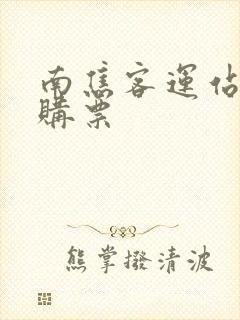 南焦客運佔
購票
熊掌撥清波